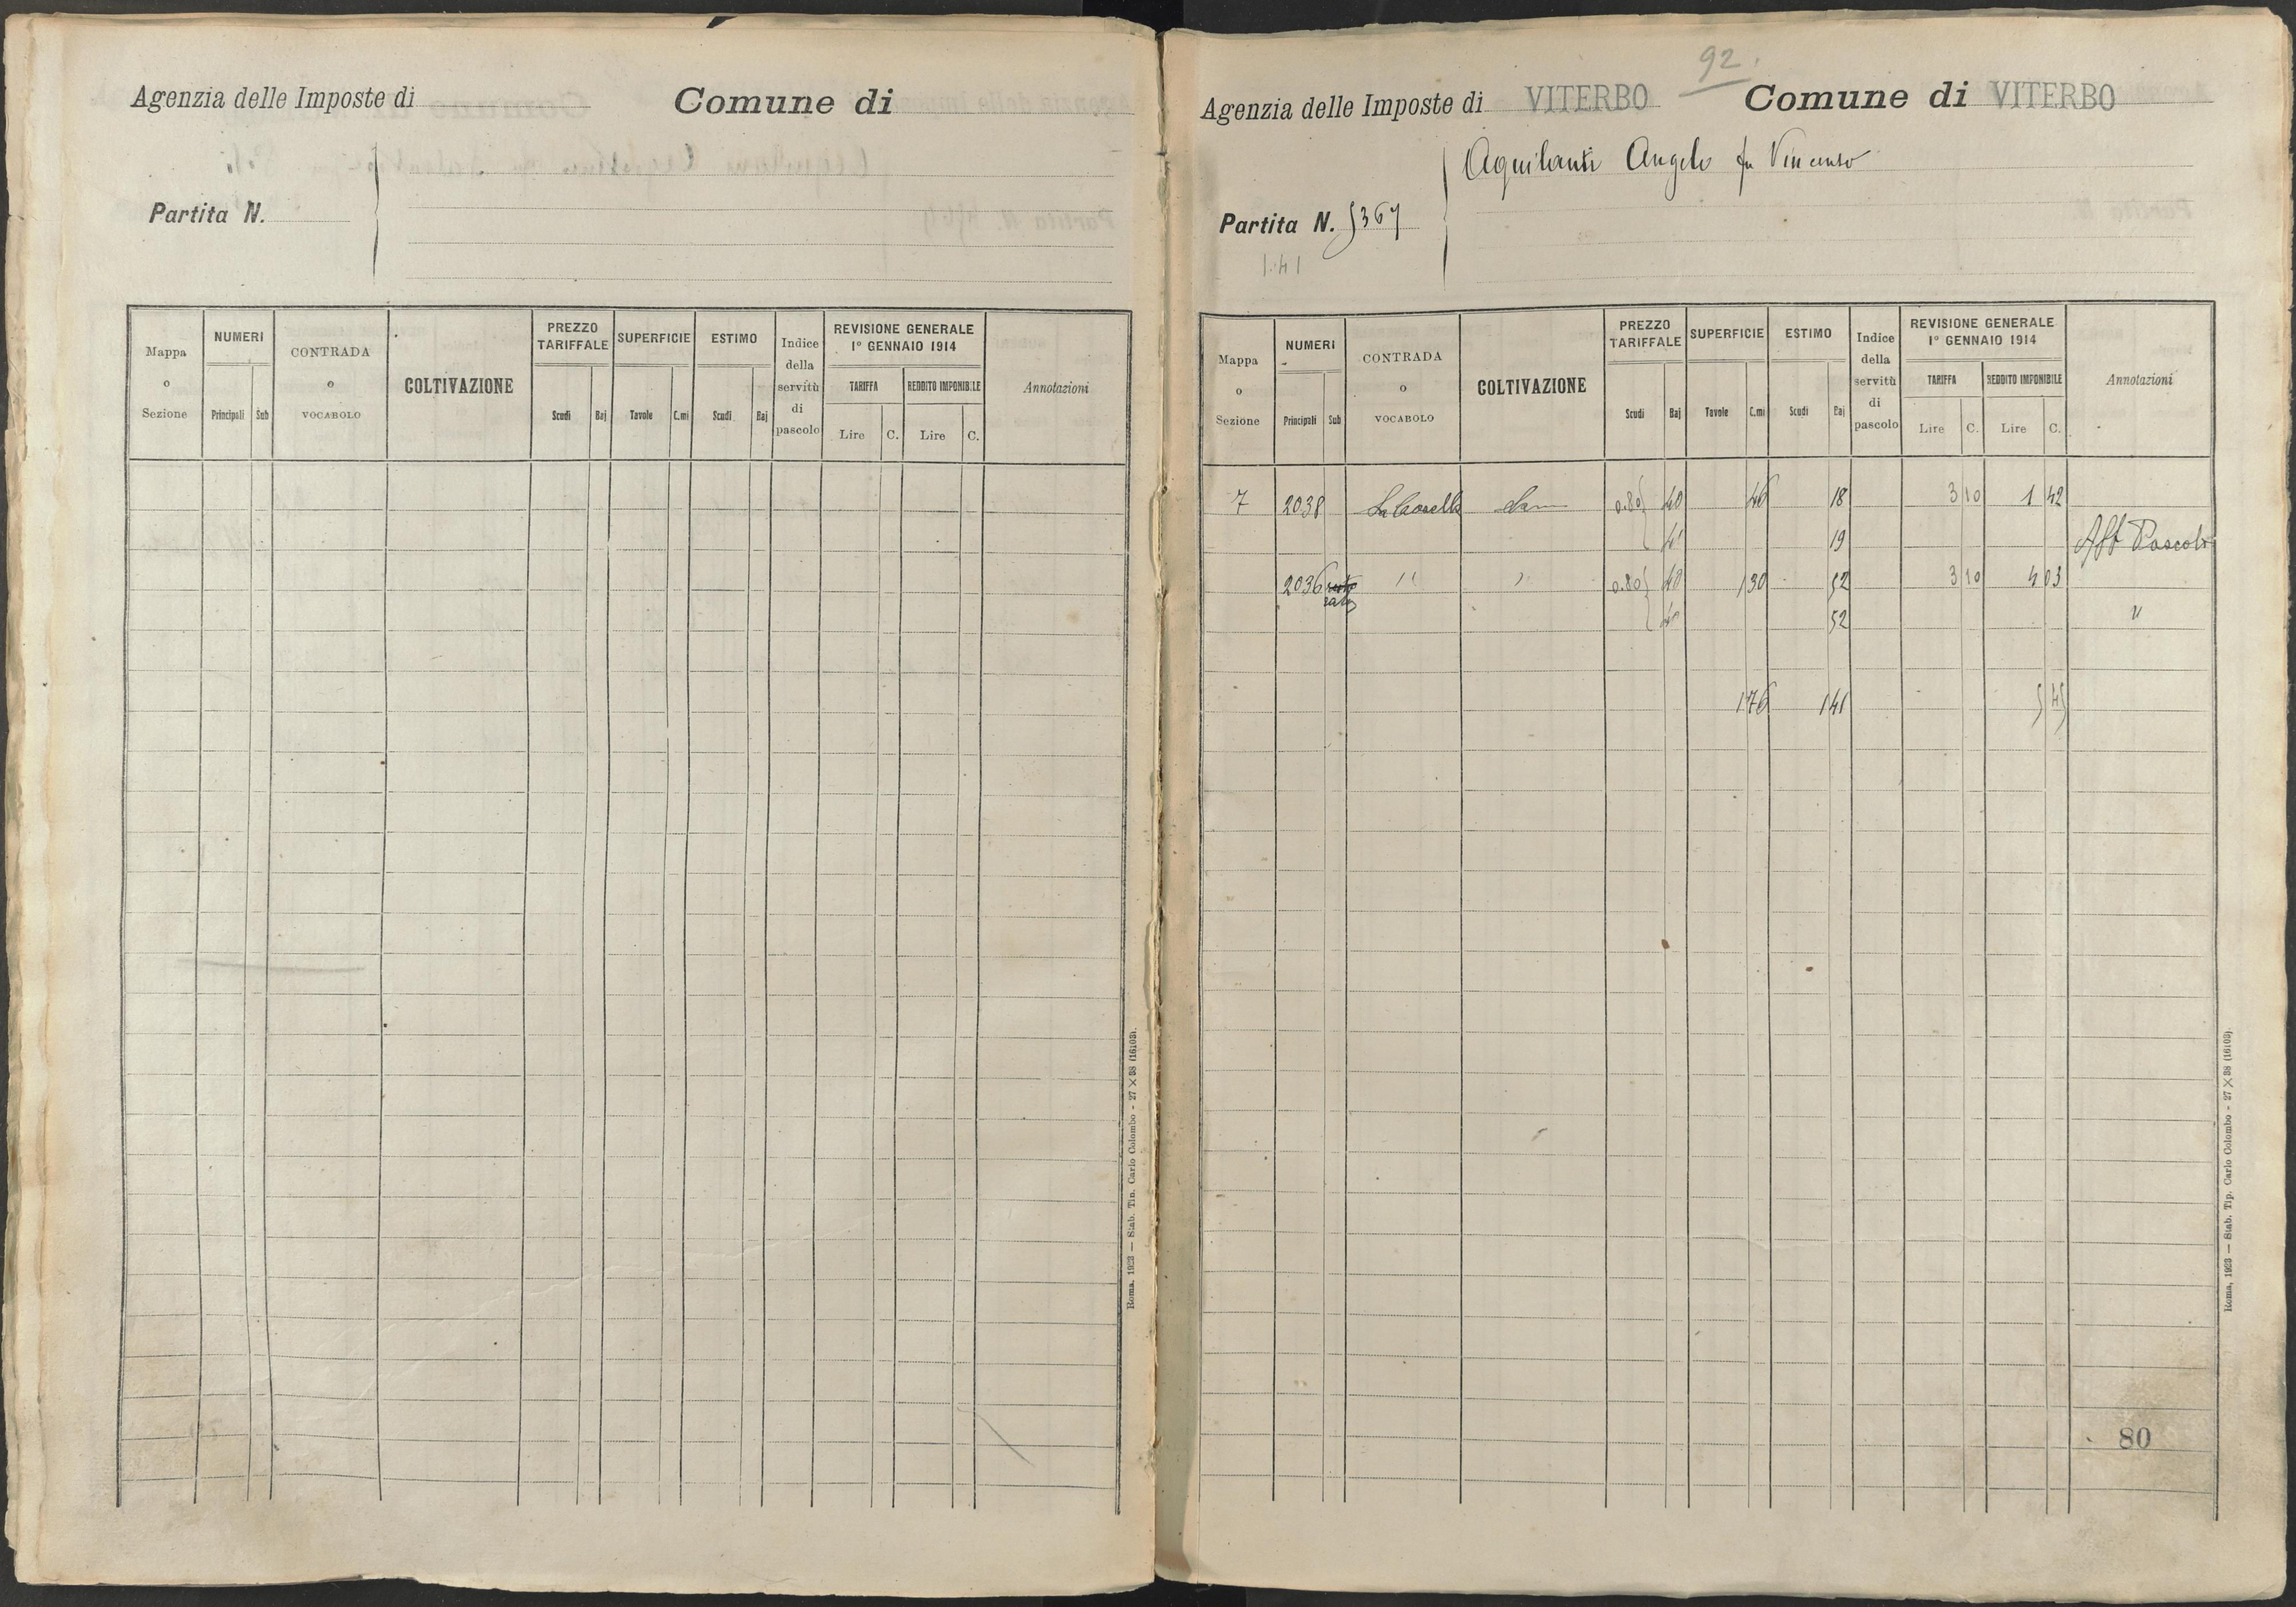 Agenzia delle Imposte di
Comune di
Partita N.
Mappa o Sezione
NUMERI
Principali Sub
CONTRADA o VOCABOLO
COLTIVAZIONE
PREZZO TARIFFALE
Scudi Baj
SUPERFICIE
Tavole C.mi
ESTIMO
Scudi Baj
Indice della servitù di pascolo
REVISIONE GENERALE
1° GENNAIO 1914
TARIFFA
Lire C.
REDDITO IMPONIBILE
Lire C.
Annotazioni
Roma, 1923 — Stab. Tip. Carlo Colombo - 27 × 38 (16103).
92.
Agenzia delle Imposte di VITERBO Comune di VITERBO
Aquilanti Angelo fu Vincenzo
Partita N. 5367
1.41
Mappa o Sezione
NUMERI
Principali Sub
CONTRADA o VOCABOLO
COLTIVAZIONE
PREZZO TARIFFALE
Scudi Baj
SUPERFICIE
Tavole C.mi
ESTIMO
Scudi Baj
Indice della servitù di pascolo
REVISIONE GENERALE
1° GENNAIO 1914
TARIFFA
Lire C.
REDDITO IMPONIBILE
Lire C.
Annotazioni
7 2038 0.80 40 46 18 3 10 1 42
41 19 Aff Pascolo
2036 " " 0.80 40 1 30 52 3 10 4 03
40 52 "
1 76 1 41 5 45
80
Roma, 1923 — Stab. Tip. Carlo Colombo - 27 × 38 (16103).